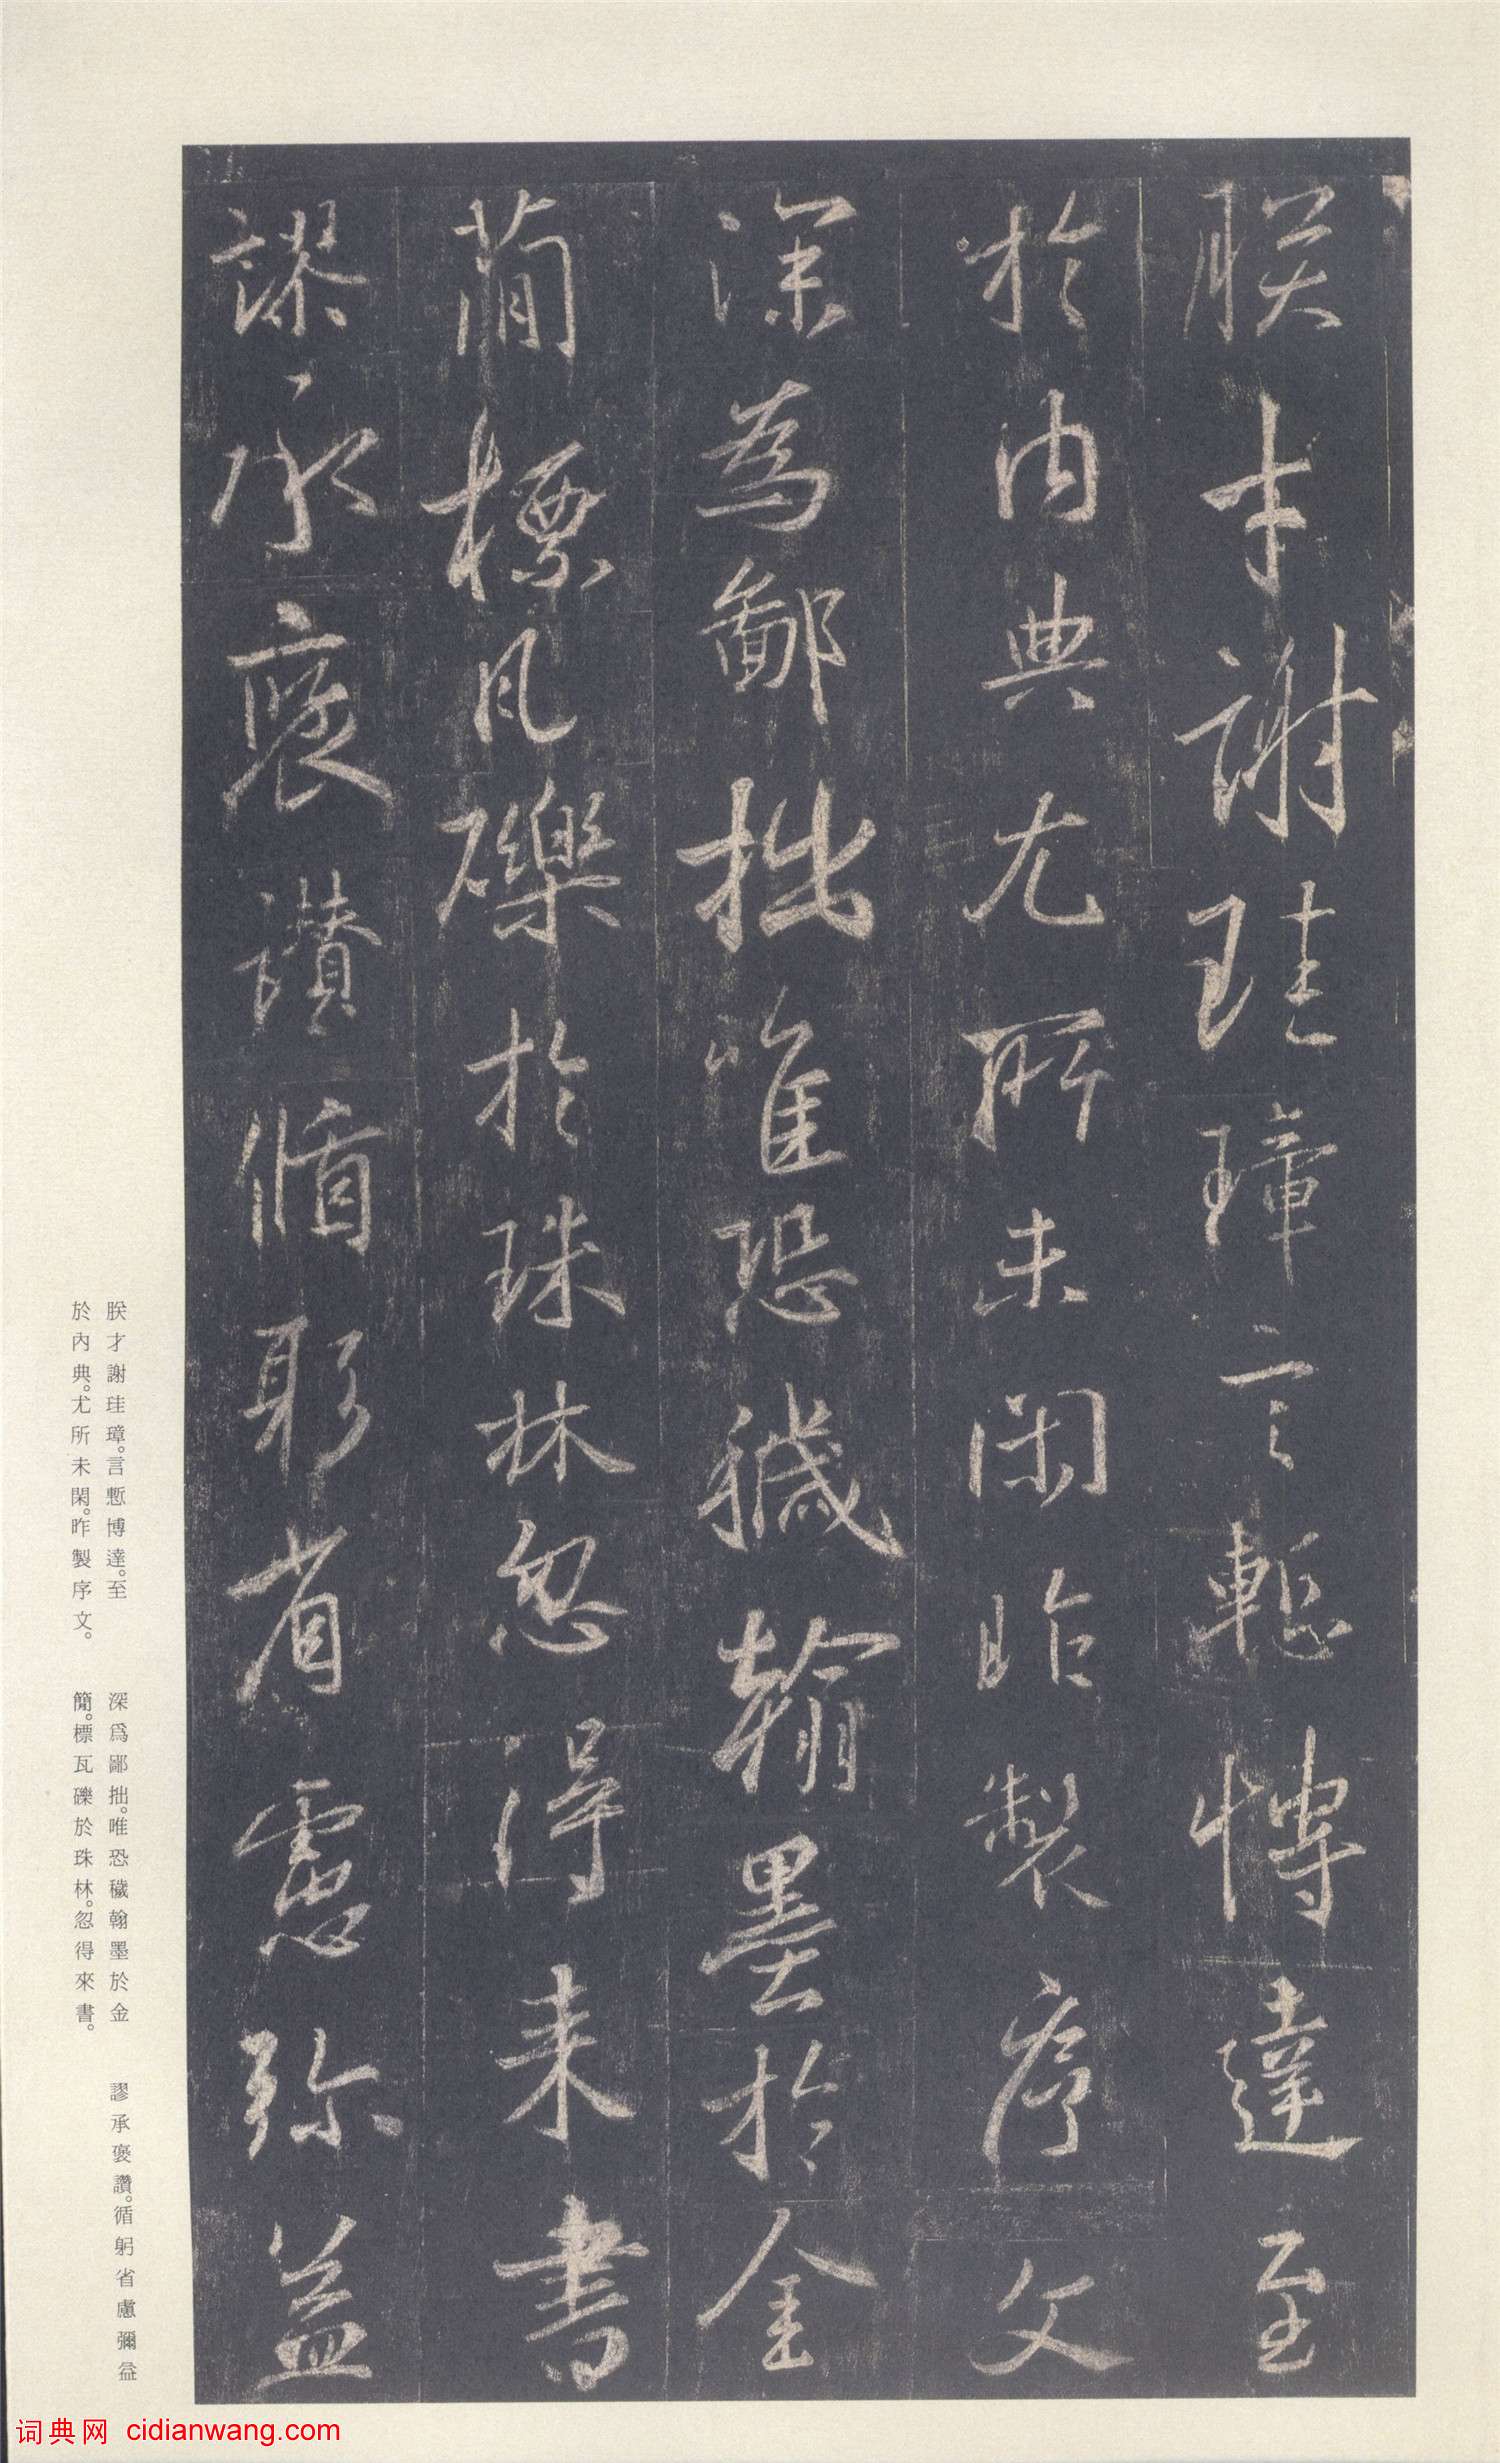 朕才謝珪璋言慙博達至
於内典尤所未閑昨製序文
深為鄙拙唯恐穢翰墨於金
簡標瓦礫於珠林忽得来書
謬承褒讃循躬省慮弥益
朕才謝珪璋。言慙博達。至
於內典。尤所未閑。昨製序文。
深爲鄙拙。唯恐穢翰墨於金
簡。標瓦礫於珠林。忽得來書。
謬承褒讚。循躬省慮彌益
词典网 cidianwang.com